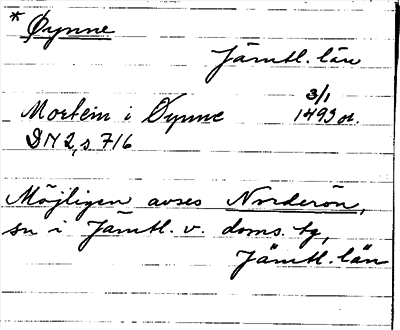 * Øynne
Jämtl. län
Mortein i Øynne 3/1 1493 or.
DN 2, s 716
Möjligen avses Norderön,
sn i Jämtl. v. doms. tg,
Jämtl. län